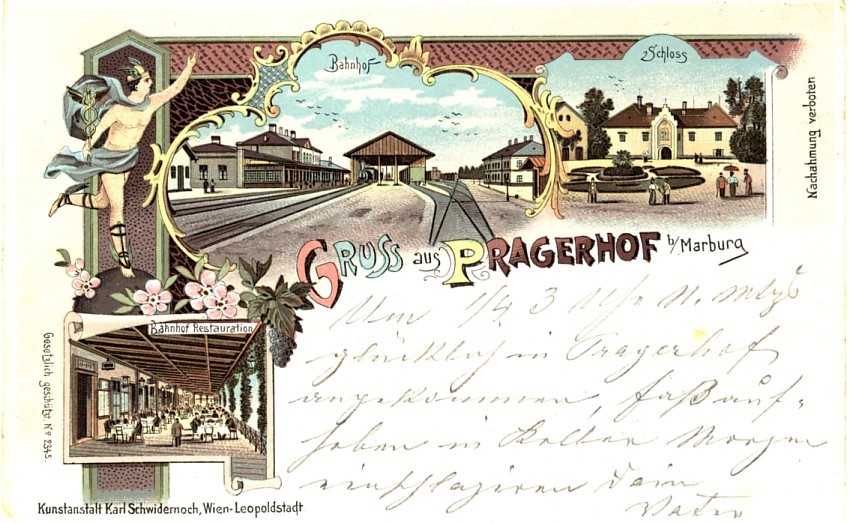 Bahnhof
Schloss
Nachahmung verboten
GRUSS aus PRAGERHOF b/Marburg
Bahnhof Restauration
Gesetzlich geschützt. Nº 2345.
Um 1/4 3 Uhr N.
glücklich in Pragerhof
angekommen,
in Morgen
Dein
Vater
Kunstanstalt Karl Schwidernoch, Wien-Leopoldstadt